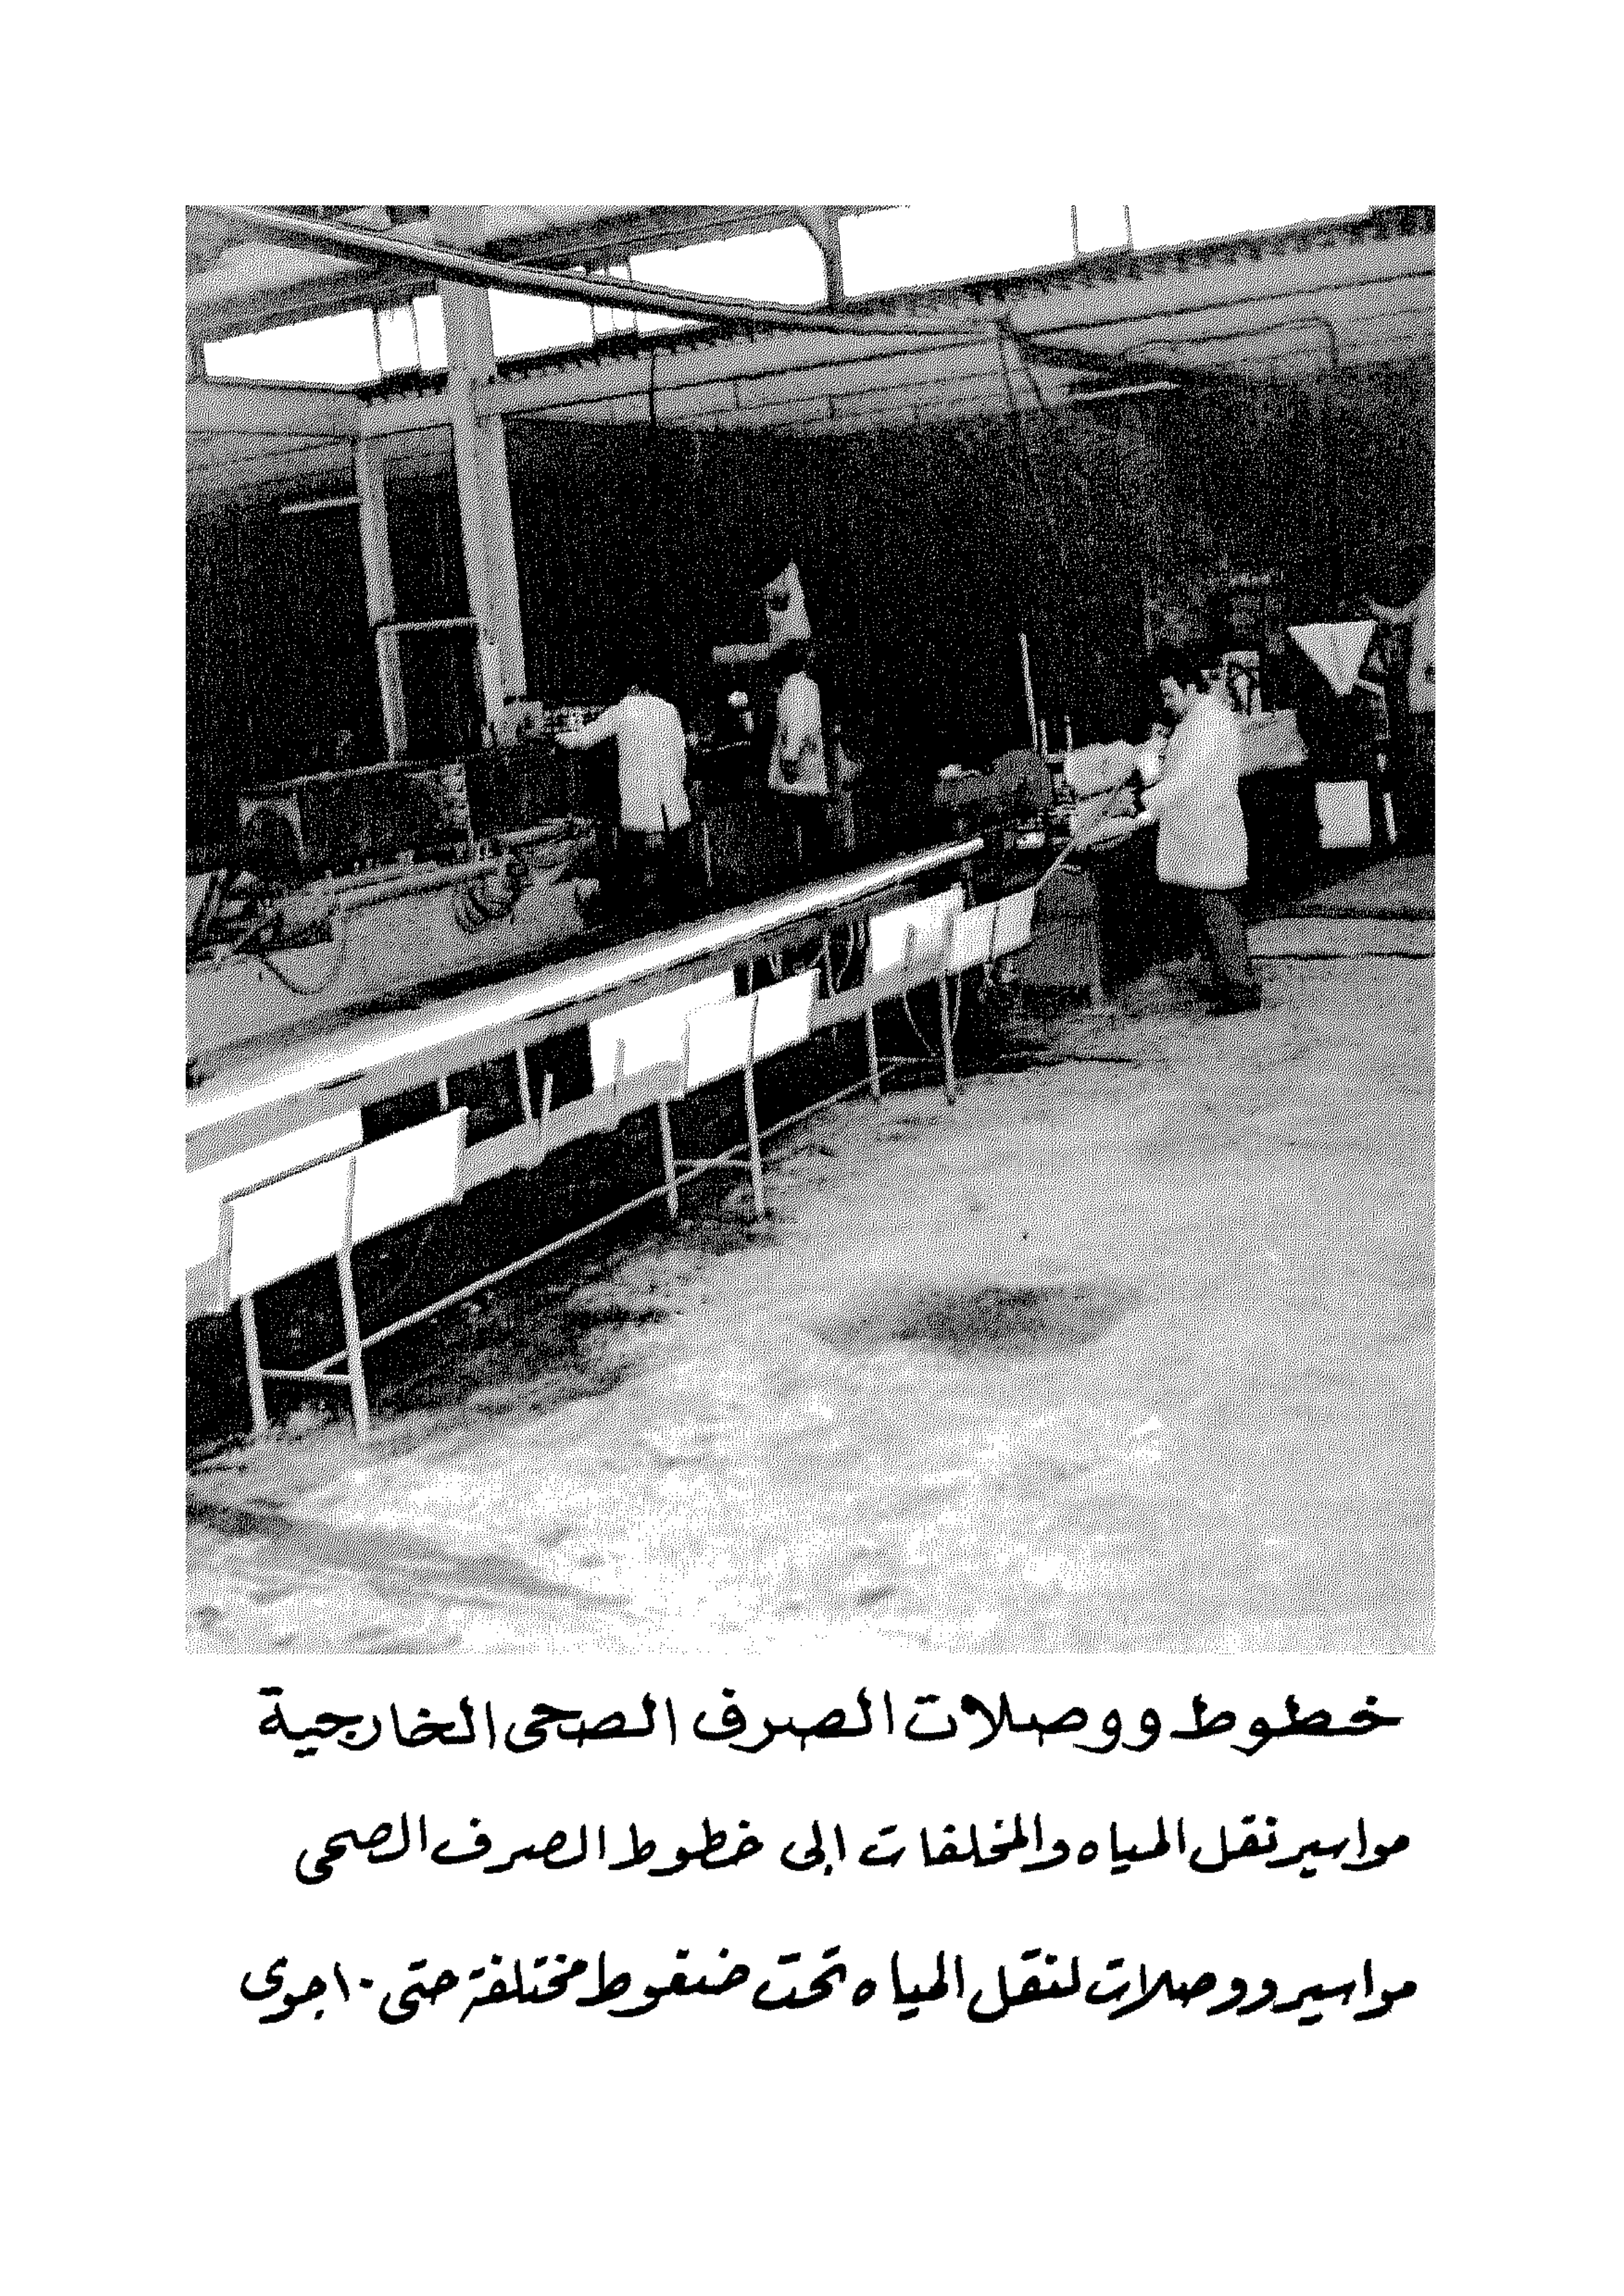 خطوط ووصلات الصرف الصحى الخارجية
مواسير نقل المياه والمخلفات إلى خطوط الصرف الصحى
مواسير ووصلات لنقل المياه تحت ضغوط مختلفة حتى ١٠ جوى